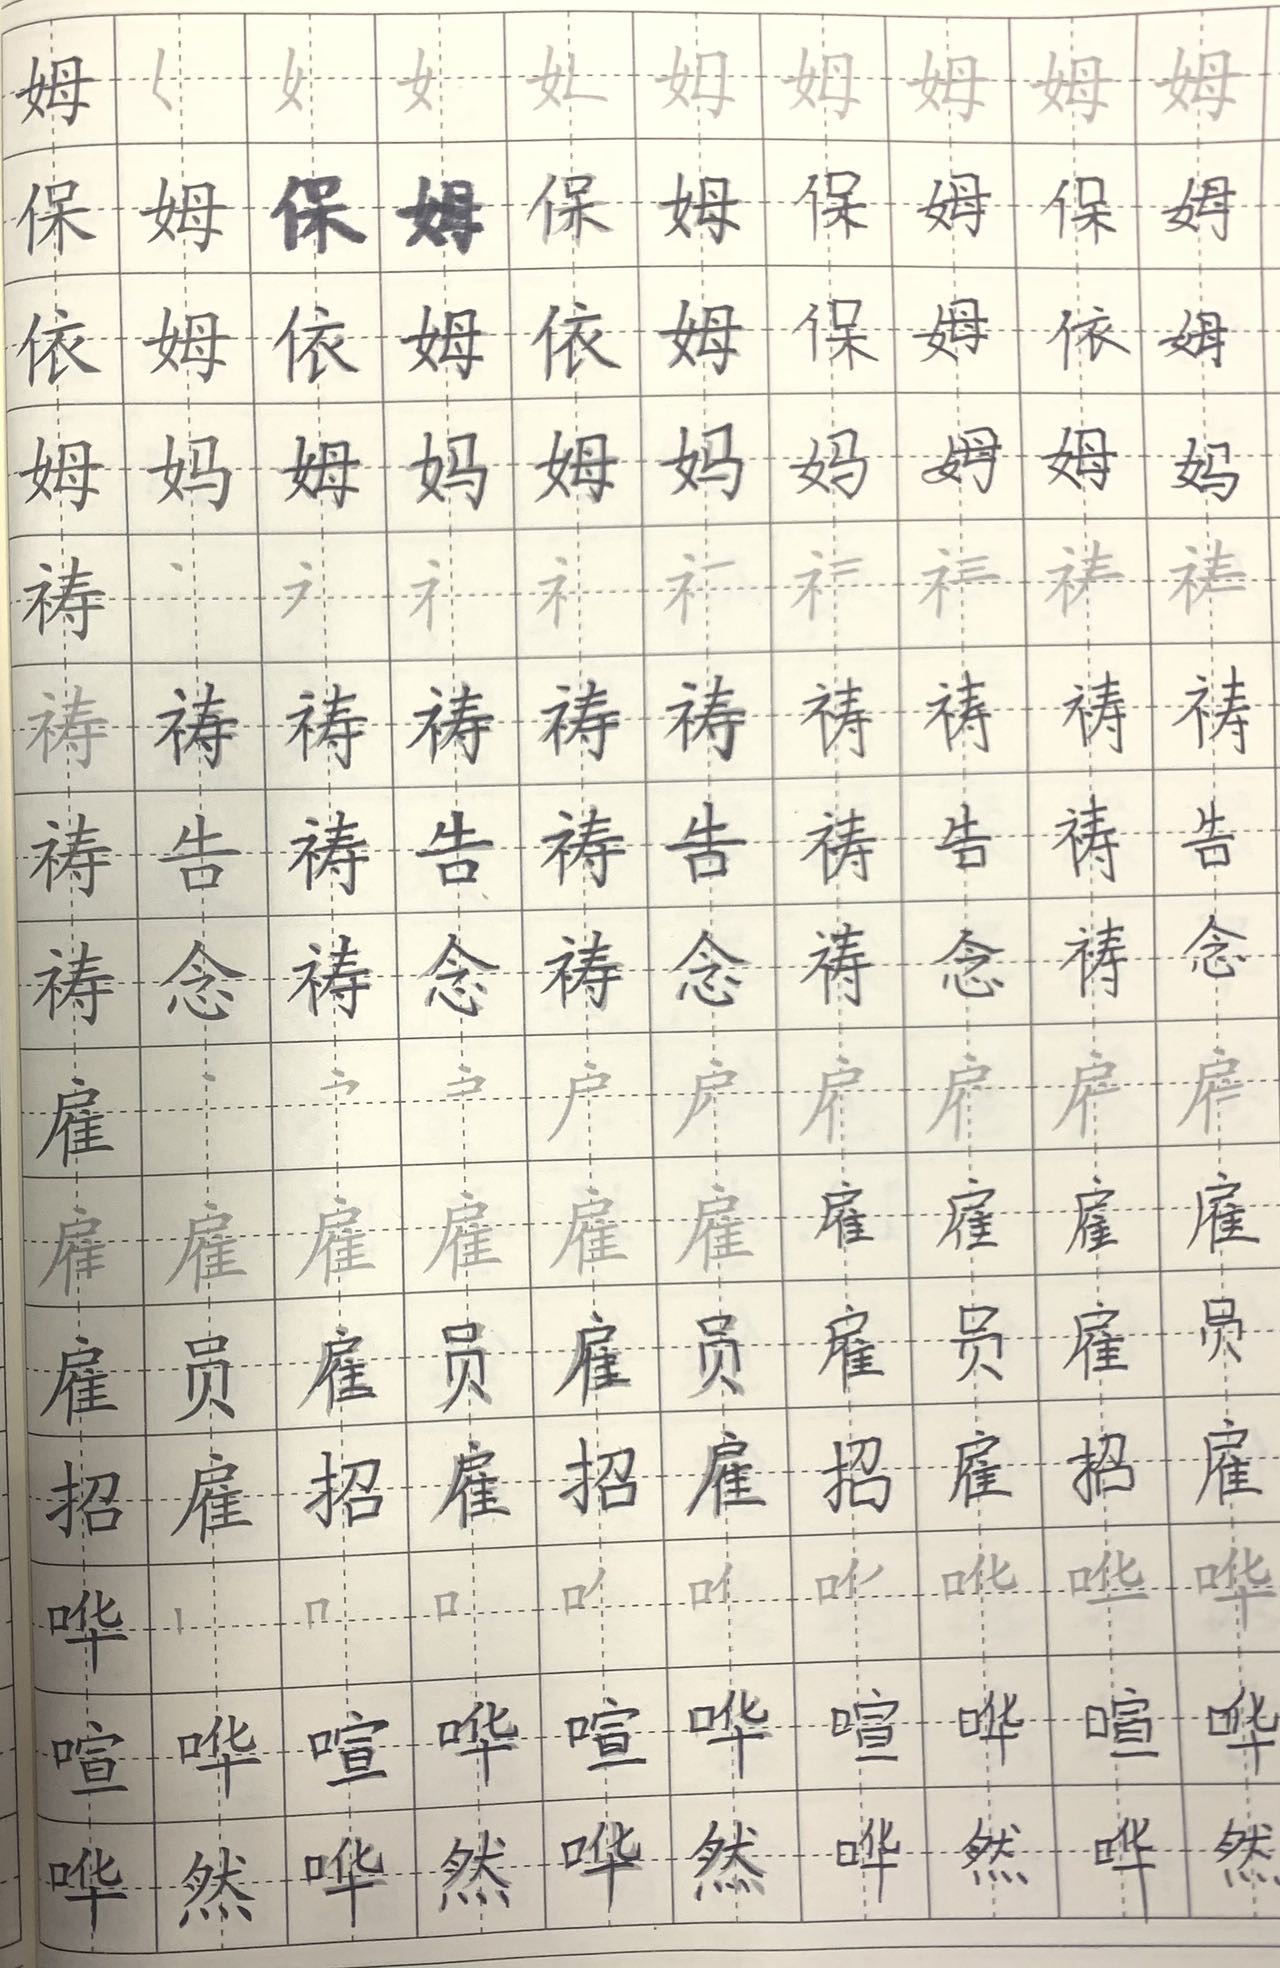 姆 𡿨 女 女 姆 姆 姆 姆 姆
保 姆 保 姆 保 姆 保 姆 保 姆
依 姆 依 姆 依 姆 保 姆 依 姆
姆 妈 姆 妈 姆 妈 妈 姆 姆 妈
祷 丶 礻 礻
祷 祷 祷 祷 祷 祷 祷 祷 祷 祷
祷 告 祷 告 祷 告 祷 告 祷 告
祷 念 祷 念 祷 念 祷 念 祷 念
雇 丶 户
雇 雇 雇 雇 雇 雇 雇 雇 雇
雇 员 雇 员 雇 员 雇 员 雇 员
招 雇 招 雇 招 雇 招 雇 招 雇
哗 丨 口 吪 哗
喧 哗 喧 哗 喧 哗 喧 哗 喧 哗
哗 然 哗 然 哗 然 哗 然 哗 然